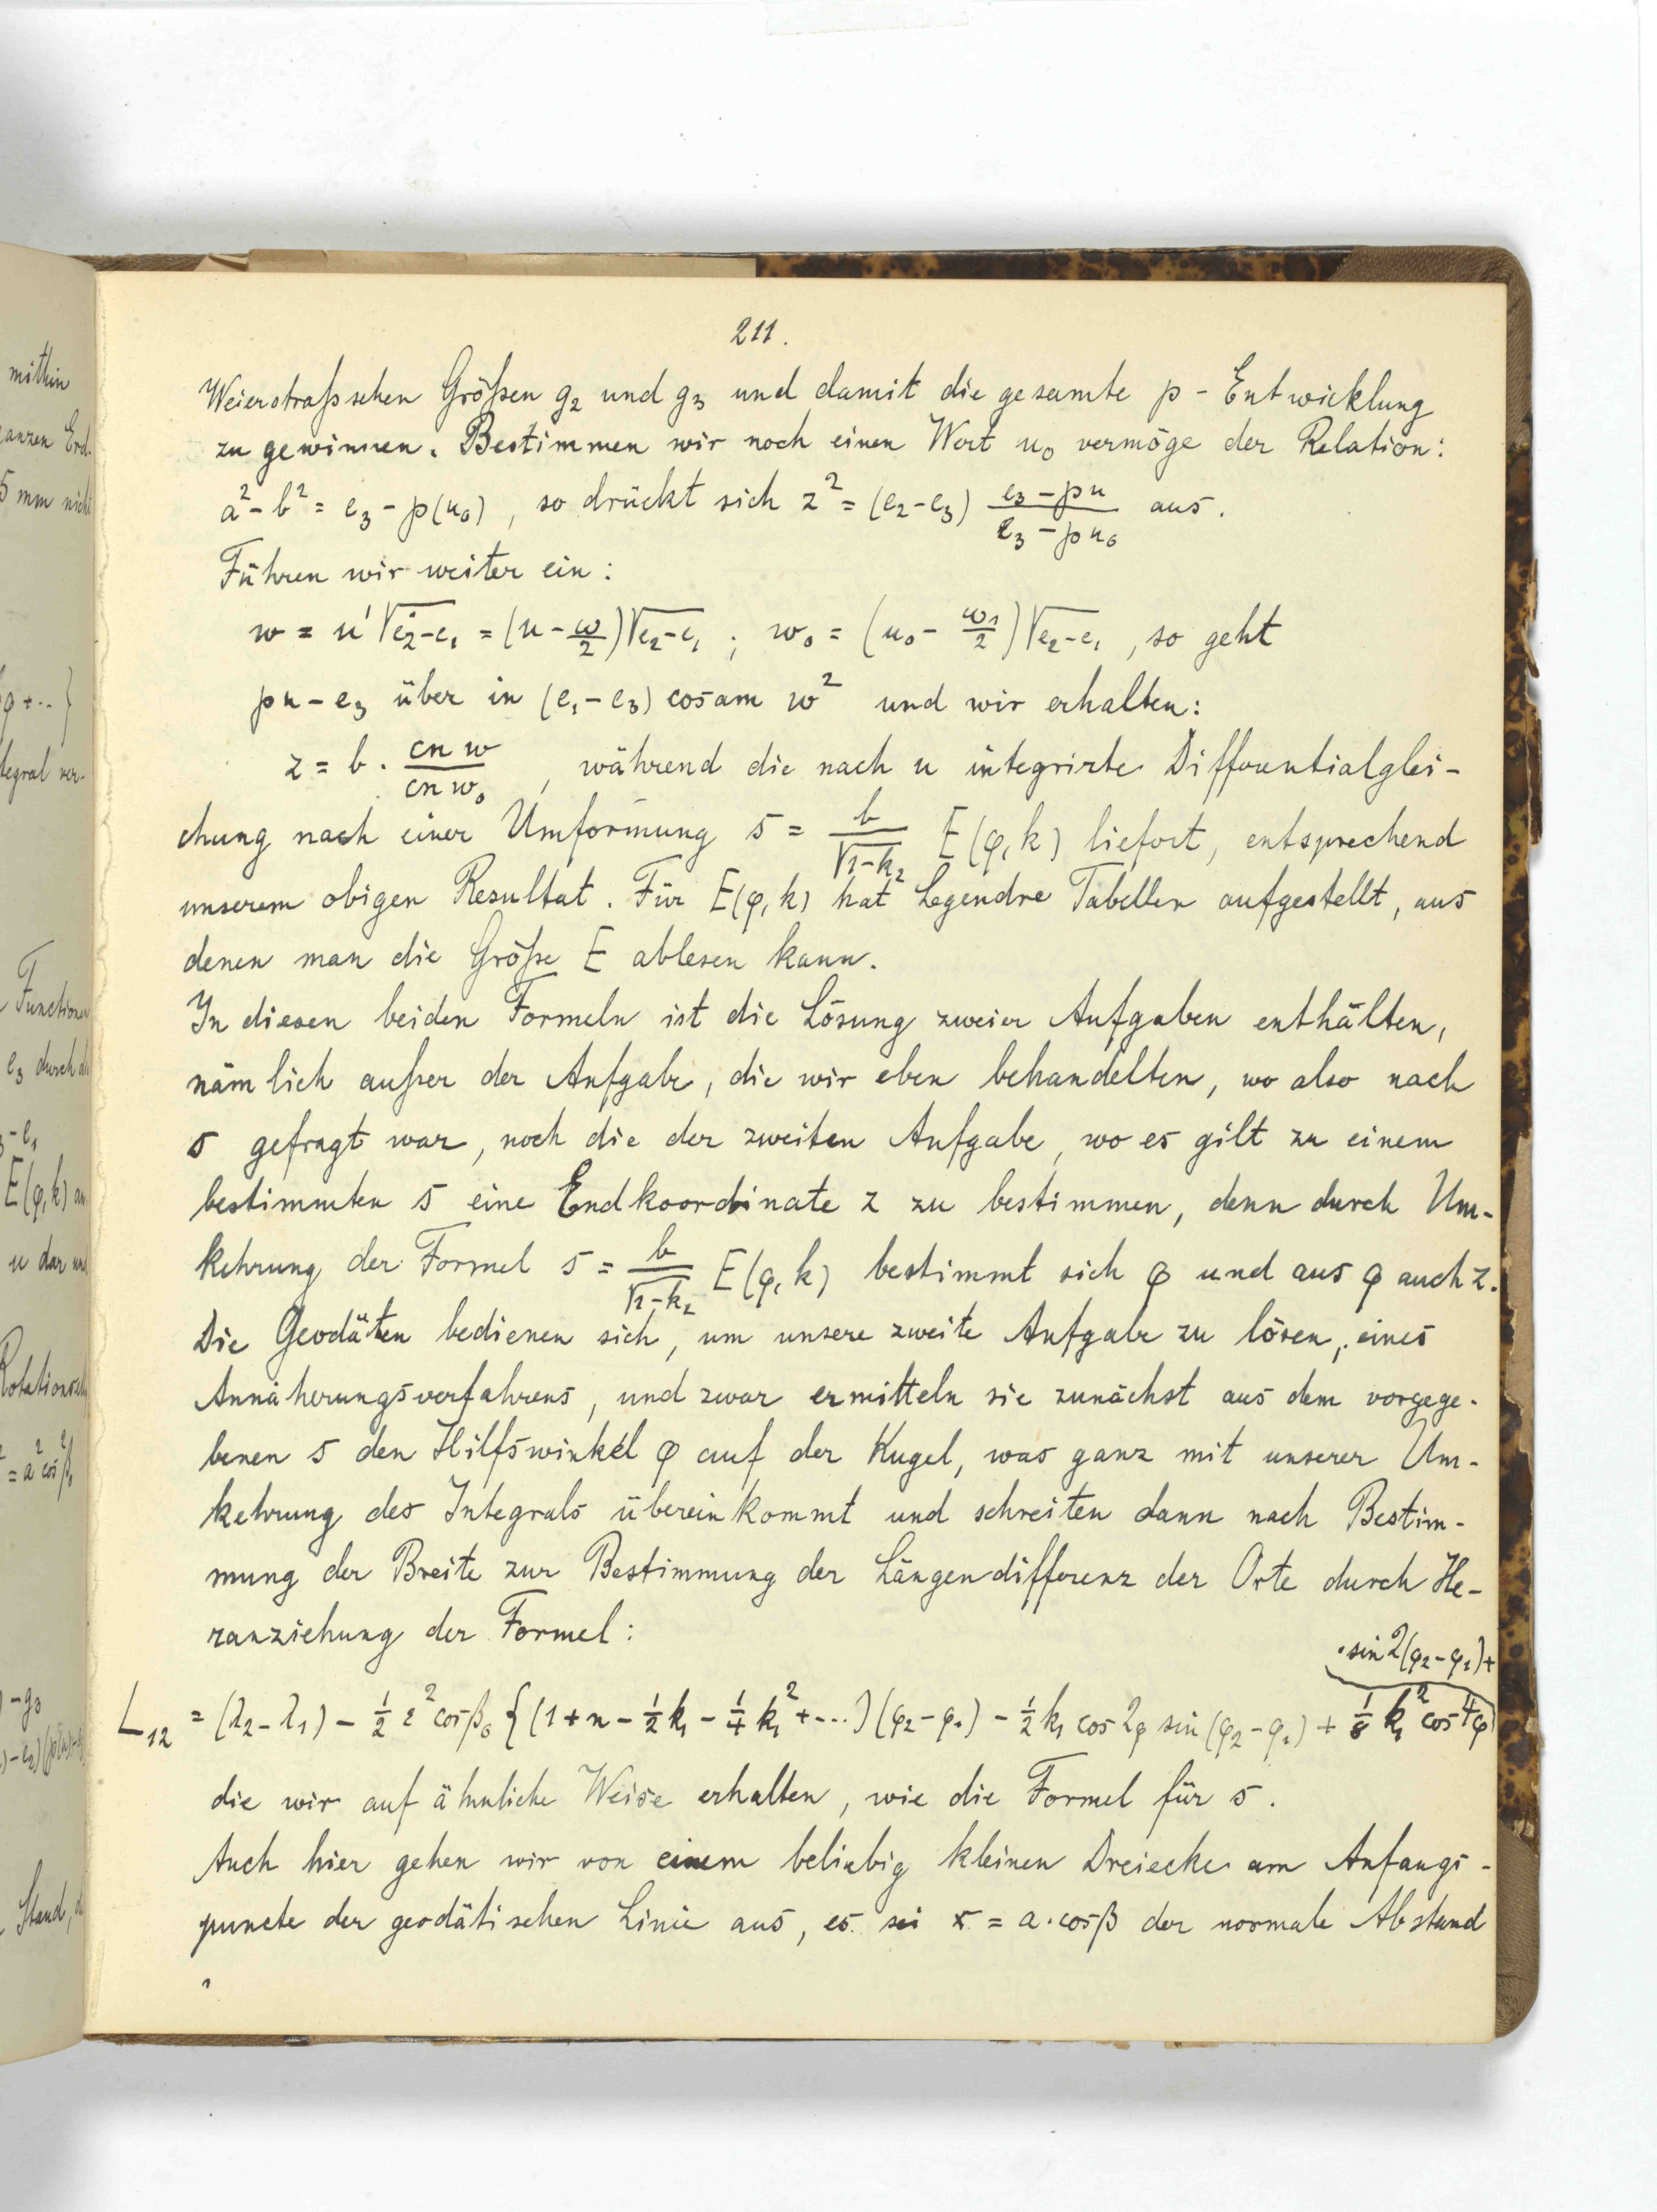 mithin
ganzen Erd-
5 mm nicht
φ + ·· }
tegral ver-
Functionen
e₃ durch
₃ - e₁
E(φ, k)
u dar und
= a² cos²β
- g₃
Stand,
211.
Weierstraßschen Größen g₂ und g₃ und damit die gesamte p - Entwicklung
zu gewinnen. Bestimmen wir noch einen Wert u₀ vermöge der Relation:
a² - b² = e₃ - p(u₀) , so drückt sich z² = (e₂ - e₃) (e₃ - pu)/(e₃ - pu₀) aus.
Führen wir weiter ein:
w = u' √(e₂ - e₁) = (u - ω/2) √(e₂ - e₁) ; w₀ = (u₀ - ω₁/2) √(e₂ - e₁) , so geht
pu - e₃ über in (e₁ - e₃) cosam w² und wir erhalten:
z = b · (cn w)/(cn w₀) , während die nach u integrirte Differentialglei-
chung nach einer Umformung s = b/√(1-k₂) E(φ, k) liefert, entsprechend
unserem obigen Resultat. Für E(φ, k) hat Legendre Tabellen aufgestellt, aus
denen man die Größe E ablesen kann.
In diesen beiden Formeln ist die Lösung zweier Aufgaben enthalten,
nämlich außer der Aufgabe, die wir eben behandelten, wo also nach
s gefragt war, noch die der zweiten Aufgabe, wo es gilt zu einem
bestimmten s eine Endkoordinate z zu bestimmen, denn durch Um-
kehrung der Formel s = b/√(1-k₂) E(φ, k) bestimmt sich φ und aus φ auch z.
Die Geodäten bedienen sich, um unsere zweite Aufgabe zu lösen, eines
Annäherungsverfahrens, und zwar ermitteln sie zunächst aus dem vorgege-
benen s den Hilfswinkel φ auf der Kugel, was ganz mit unserer Um-
kehrung des Integrals überein kommt und schreiten dann nach Bestim-
mung der Breite zur Bestimmung der Längendifferenz der Orte durch He-
ranziehung der Formel:
· sin 2(φ₂ - φ₁) +
L₁₂ = (λ₂ - λ₁) - ½ ε² cos β₀ {(1 + n - ½ k₁ - ¼ k₁² + ···)(φ₂ - φ₁) - ½ k₁ cos 2φ sin (φ₂ - φ₁) + ⅛ k₁² cos 4φ
die wir auf ähnliche Weise erhalten, wie die Formel für s.
Auch hier gehen wir von einem beliebig kleinen Dreiecke am Anfangs-
puncte der geodätischen Linie aus, es sei x = a · cos β der normale Abstand